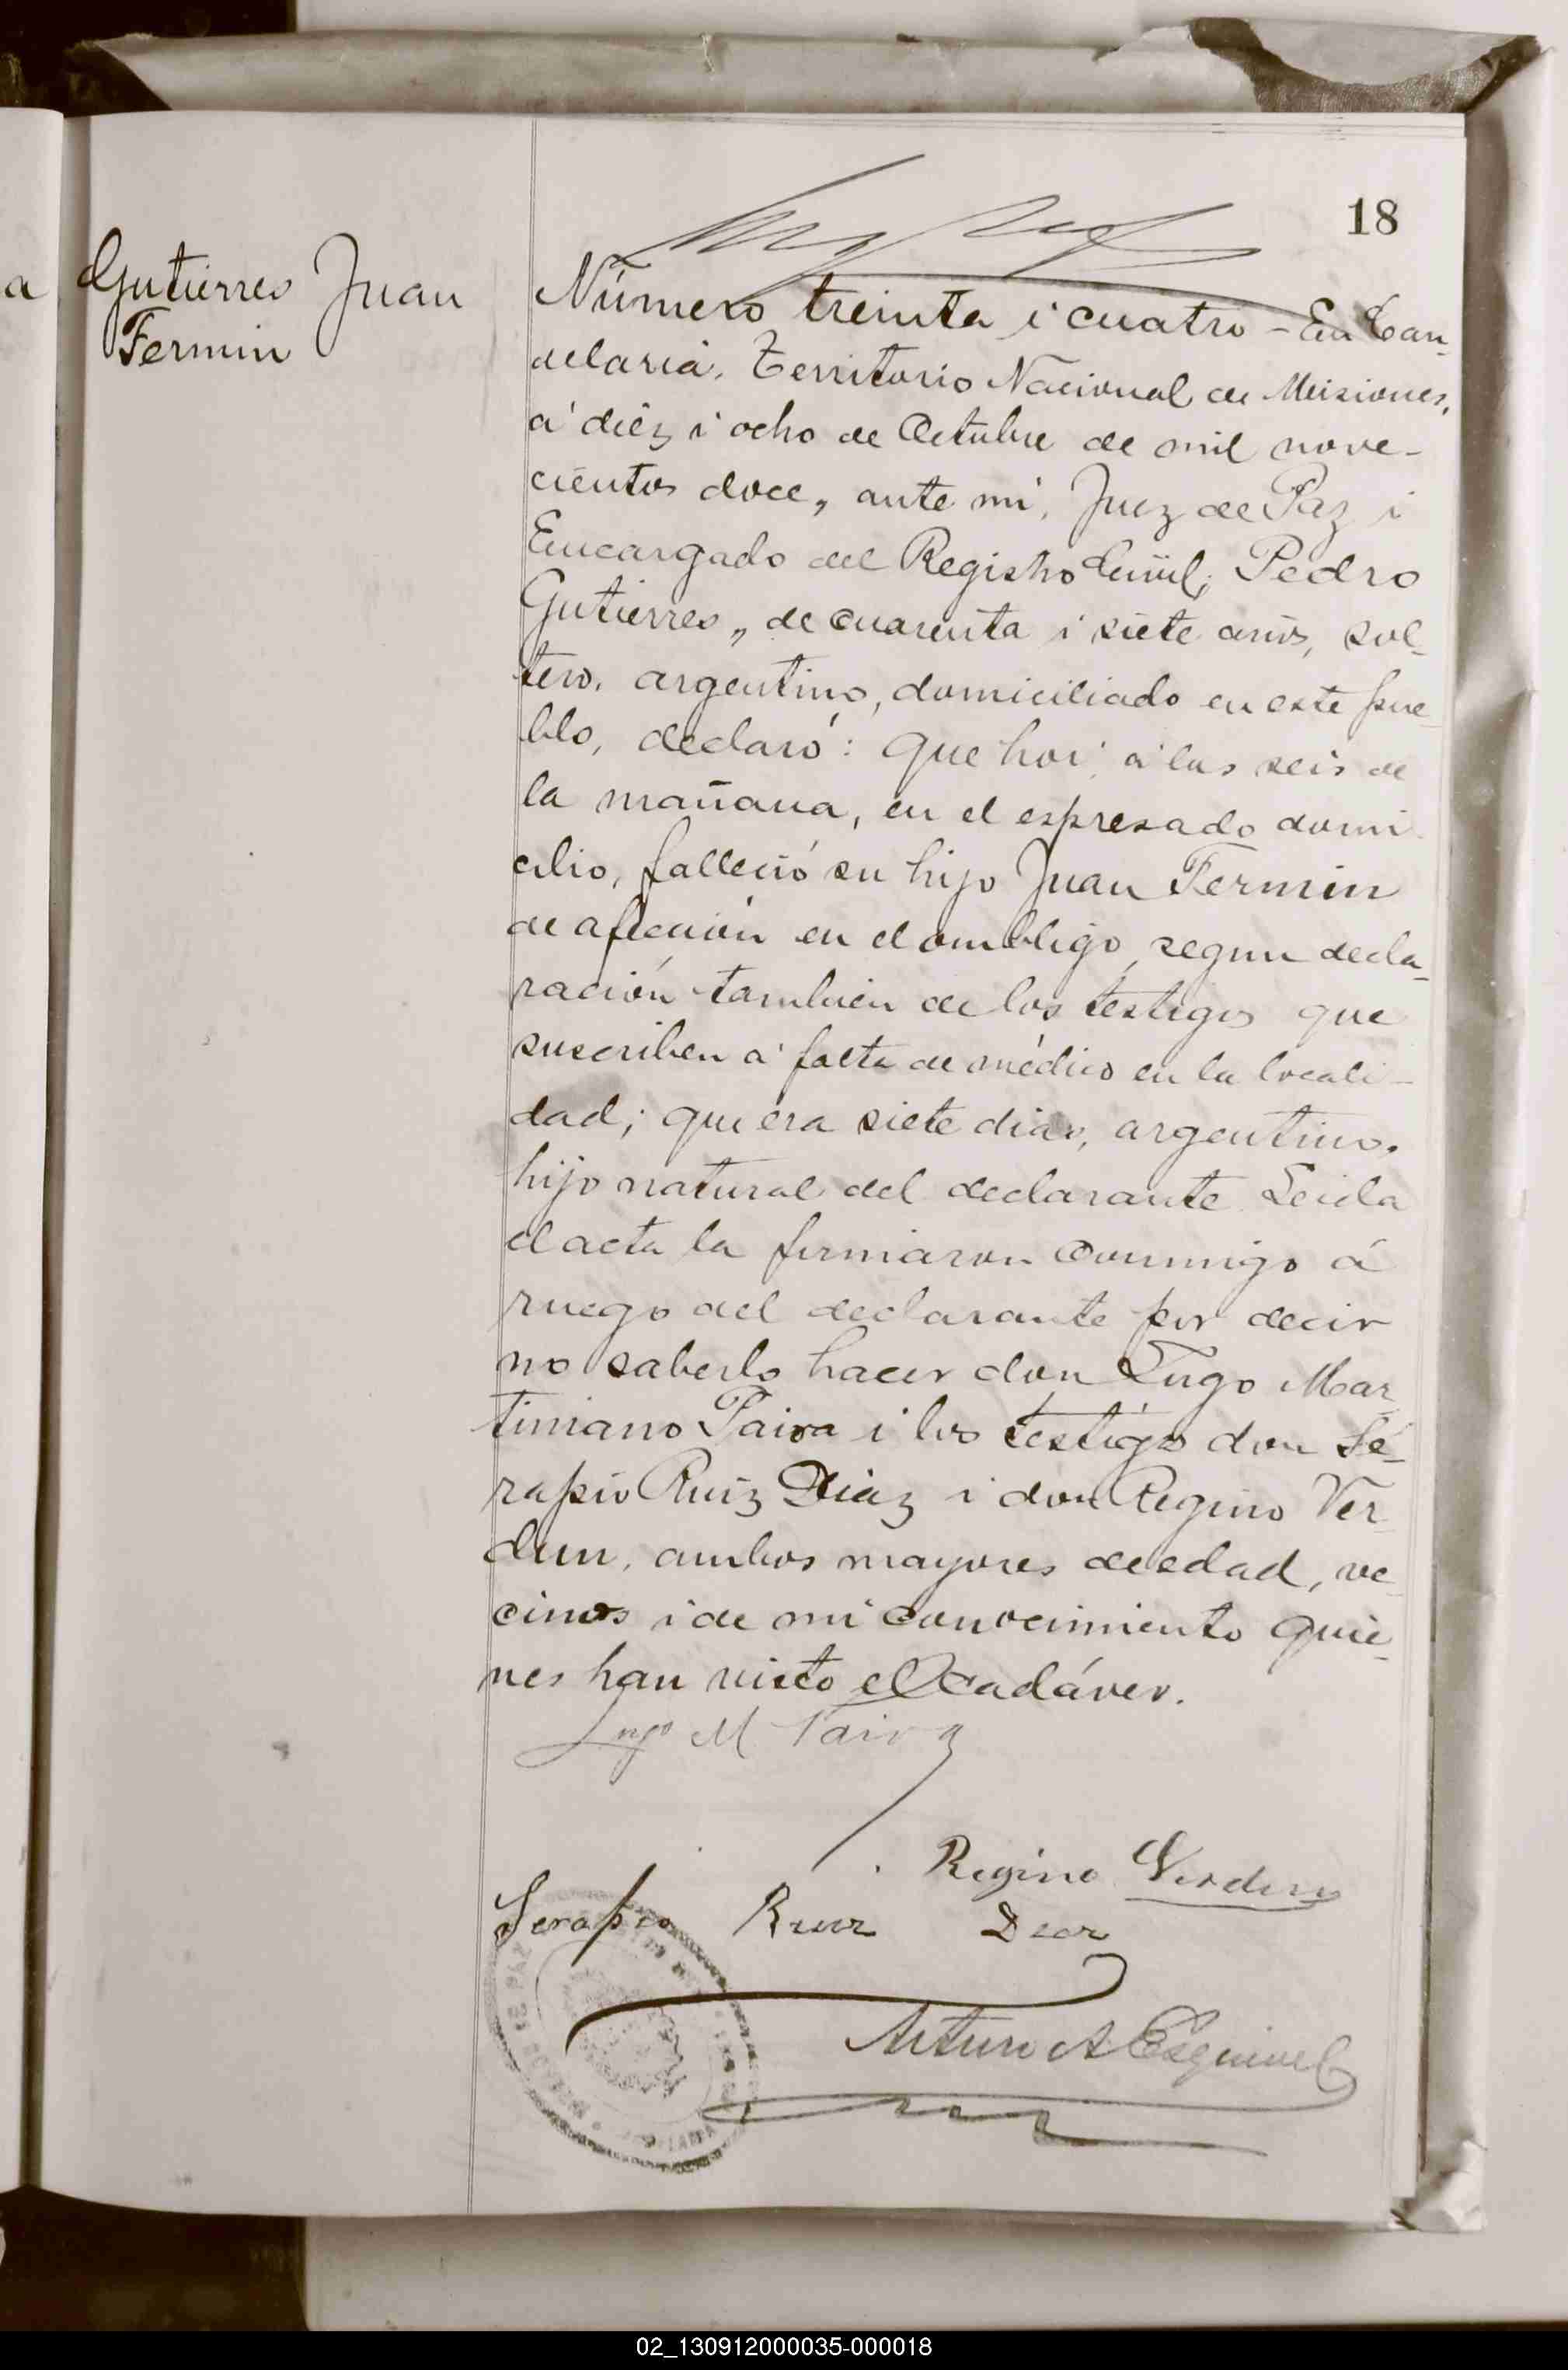 18
a
Gutierres Juan
Fermin
Número treinta i cuatro - En Can-
delaria, Territorio Nacional de Misiones,
á diéz i ocho de Octubre de mil nove-
cientos doce, ante mi, Juez de Paz i
Encargado del Registro Civil; Pedro
Gutierres, de cuarenta i siete años, sol-
tero, argentino, domiciliado en este pue-
blo, declaró: que hoi á las seis de
la mañana, en el espresado domi-
cilio, falleció su hijo Juan Fermin
de afección en el ombligo, segun decla-
ración tambien de los testigos que
suscriben a falta de médico en la locali-
dad; que era siete dias, argentino,
hijo natural del declarante Leida
el acta la firmaron conmigo á
ruego del declarante por decir
no saberlo hacer don Lugo Mar-
tiniano Paiva i los testigos don Sé-
rapio Ruiz Diaz i don Regino Ver-
dun, ambos mayores de edad, ve-
cinos i de mi conocimiento quie-
nes han visto el cadáver.
Lugo M Paiva
Regino Verdun
Serapio Ruiz Diaz
Arturo A Esquivel
02_130912000035-000018